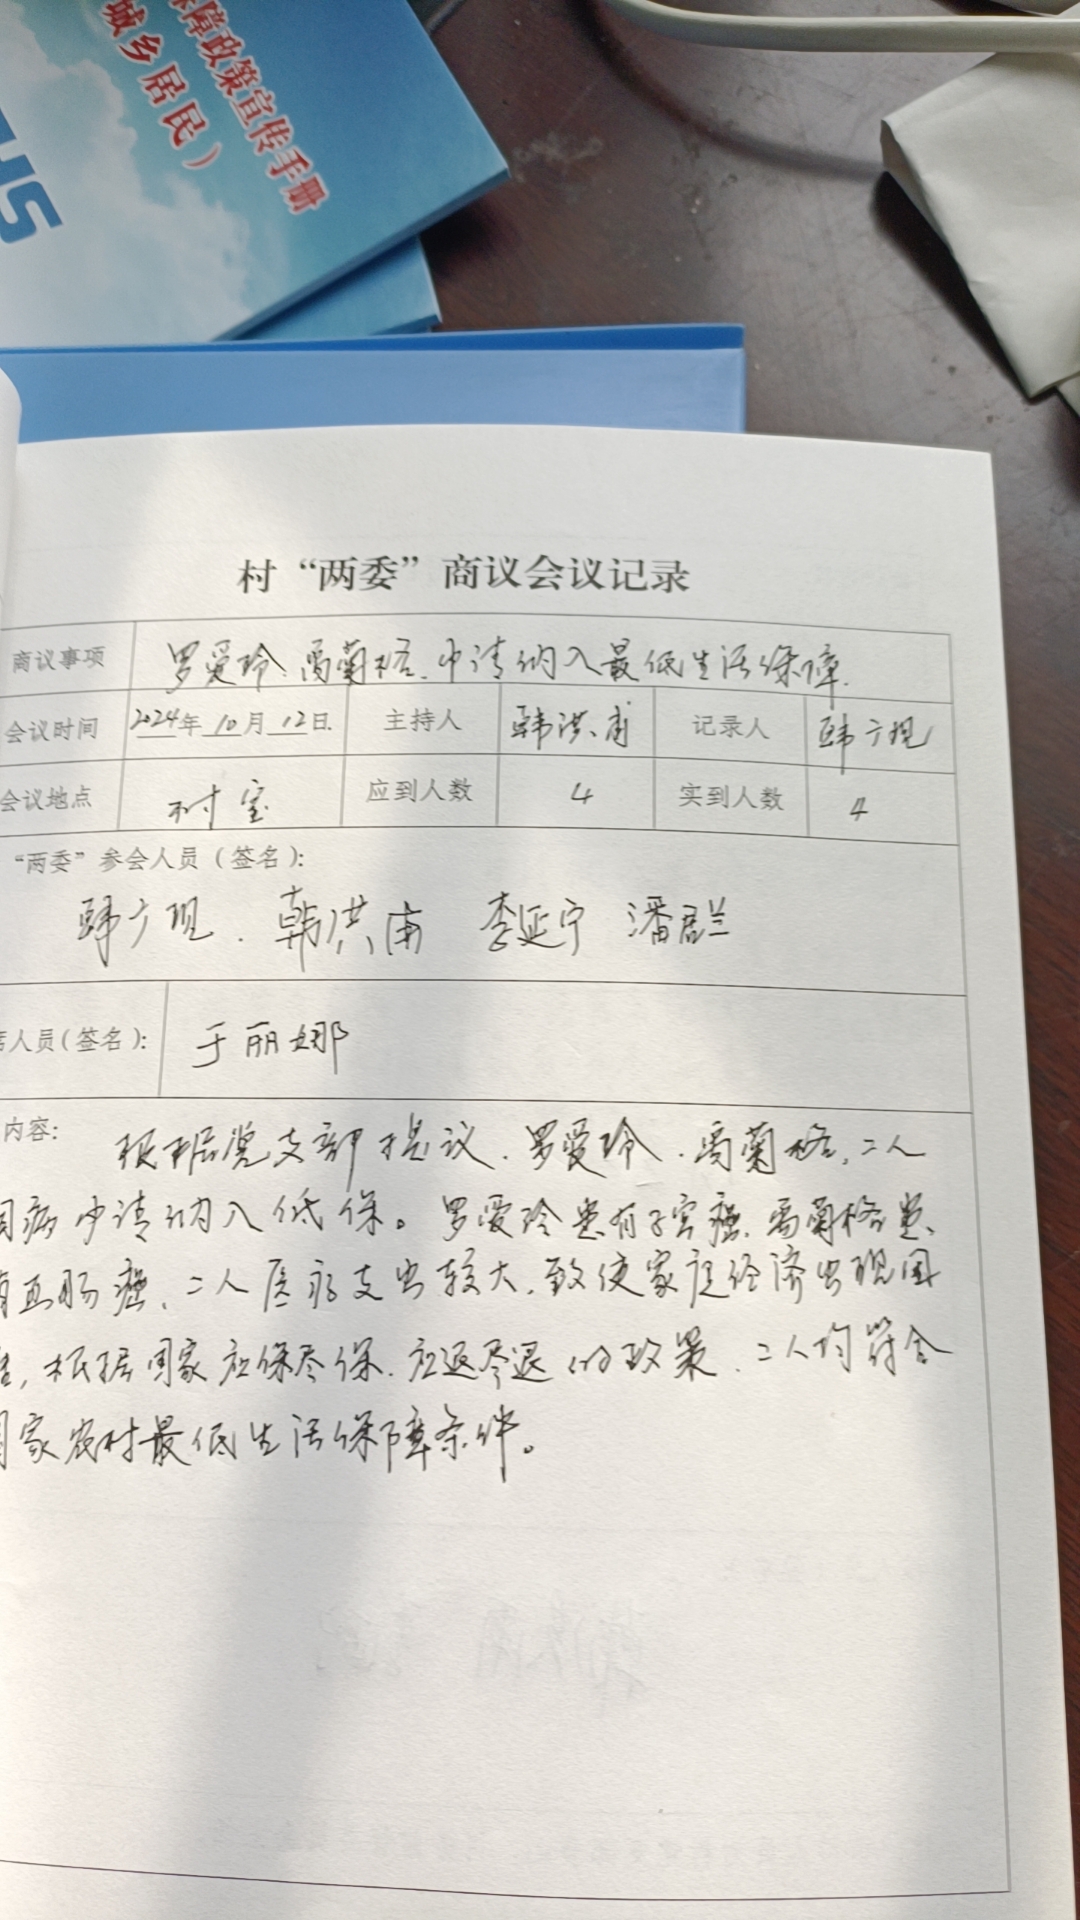 障政策宣传手册
城乡居民）
HS
村“两委”商议会议记录
商议事项 罗爱玲、禹菊格、申请纳入最低生活保障.
会议时间 2024年10月12日. 主持人 韩洪甫 记录人 韩广现
会议地点 村室 应到人数 4 实到人数 4
“两委”参会人员（签名）：
韩广现. 韩洪甫 李延宁 潘君兰
人员（签名）： 于丽娜
内容： 根据党支部提议、罗爱玲、禹菊格、二人
因病申请纳入低保。罗爱玲患有子宫癌、禹菊格患
有直肠癌、二人医疗支出较大、致使家庭经济出现困
难，根据国家应保尽保、应退尽退的政策、二人均符合
国家农村最低生活保障条件。